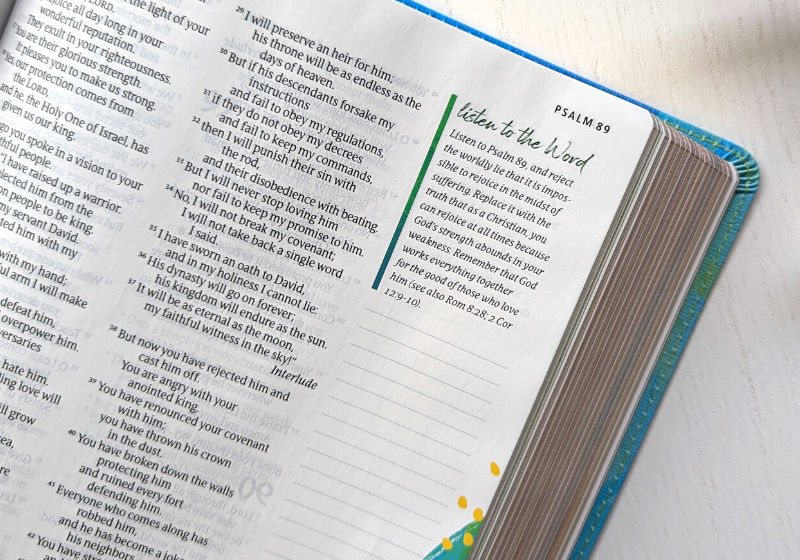 LORD.
rejoice all day long in your
wonderful reputation.
They exult in your righteousness.
You are their glorious strength.
It pleases you to make us strong.
Yes, our protection comes from
the LORD,
and he, the Holy One of Israel, has
given us our king.
ago you spoke in a vision to your
faithful people.
"I have raised up a warrior.
selected him from the
on people to be king.
my servant David.
ted him with my
with my hand;
ful arm I will make
defeat him,
overpower him.
versaries
hate him.
ling love will
ill grow
sea,
29 I will preserve an heir for him;
his throne will be as endless as the
days of heaven.
30 But if his descendants forsake my
instructions
and fail to obey my regulations,
31 if they do not obey my decrees
and fail to keep my commands,
32 then I will punish their sin with
the rod,
and their disobedience with beating.
33 But I will never stop loving him
nor fail to keep my promise to him.
34 No, I will not break my covenant;
I will not take back a single word
I said.
35 I have sworn an oath to David,
and in my holiness I cannot lie:
36 His dynasty will go on forever;
his kingdom will endure as the sun.
37 It will be as eternal as the moon,
my faithful witness in the sky!"
Interlude
38 But now you have rejected him and
cast him off.
You are angry with your
anointed king.
39 You have renounced your covenant
with him;
you have thrown his crown
in the dust.
40 You have broken down the walls
protecting him
and ruined every fort
defending him.
41 Everyone who comes along has
robbed him,
and he has become a joke
his neighbors.
42 You have
PSALM 89
listen to the Word
Listen to Psalm 89, and reject
the worldly lie that it is impos-
sible to rejoice in the midst of
suffering. Replace it with the
truth that as a Christian, you
can rejoice at all times because
God's strength abounds in your
weakness. Remember that God
works everything together
for the good of those who love
him (see also Rom 8:28; 2 Cor
12:9-10).